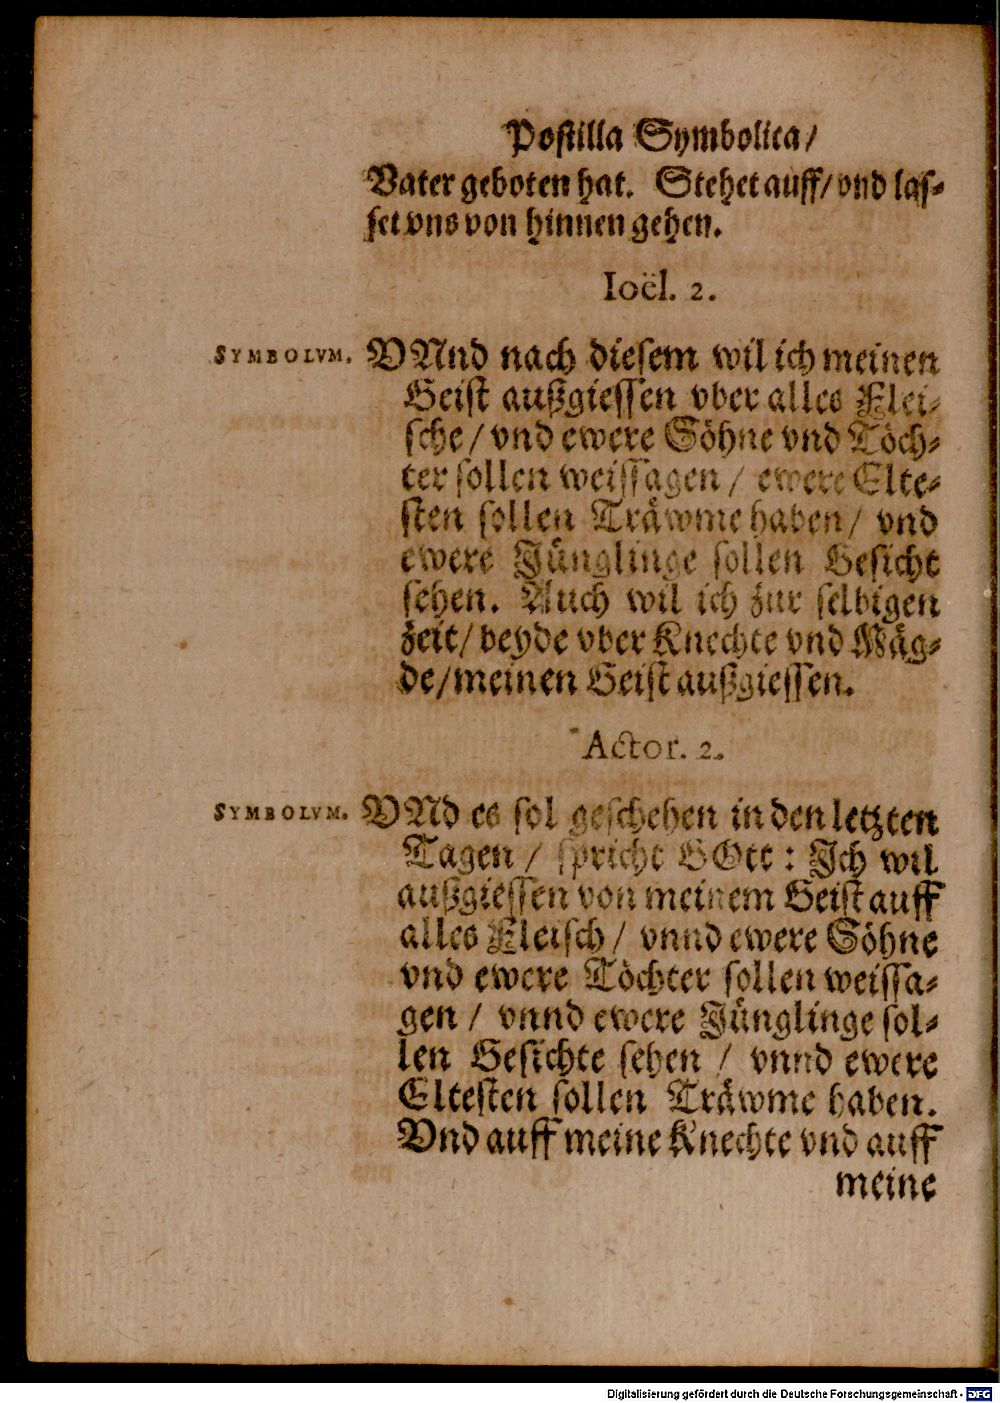 Postilla Symbolica/
Vater geboten hat. Stehet auff/ vnd las-
set vns von hinnen gehen.
Ioël. 2.
SYMBOLVM. VNnd nach diesem wil ich meinen
Geist außgiessen vber alles Flei-
sche/ vnd ewere Söhne vnd Töch-
ter sollen weissagen/ ewere Elte-
sten sollen Träwme haben/ vnd
ewere Jünglinge sollen Gesicht
sehen. Auch wil ich zur selbigen
zeit/ beyde vber Knechte vnd Mäg-
de/ meinen Geist außgiessen.
Actor. 2.
SYMBOLVM. VNd es sol geschehen in den letzten
Tagen/ spricht GOtt: Ich wil
außgiessen von meinem Geist auff
alles Fleisch/ vnnd ewere Söhne
vnd ewere Töchter sollen weissa-
gen/ vnnd ewere Jünglinge sol-
len Gesichte sehen/ vnnd ewere
Eltesten sollen Träwme haben.
Vnd auff meine Knechte vnd auff
meine
Digitalisierung gefördert durch die Deutsche Forschungsgemeinschaft - DFG